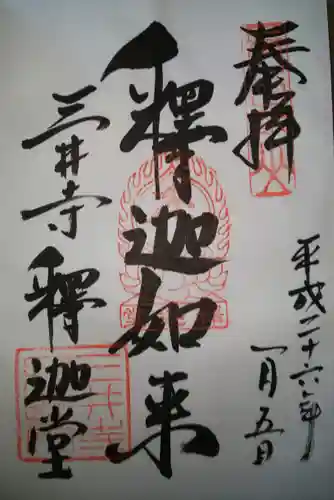 奉拝
平成二十六年
一月五日
釋迦如来
三井寺
釋迦堂